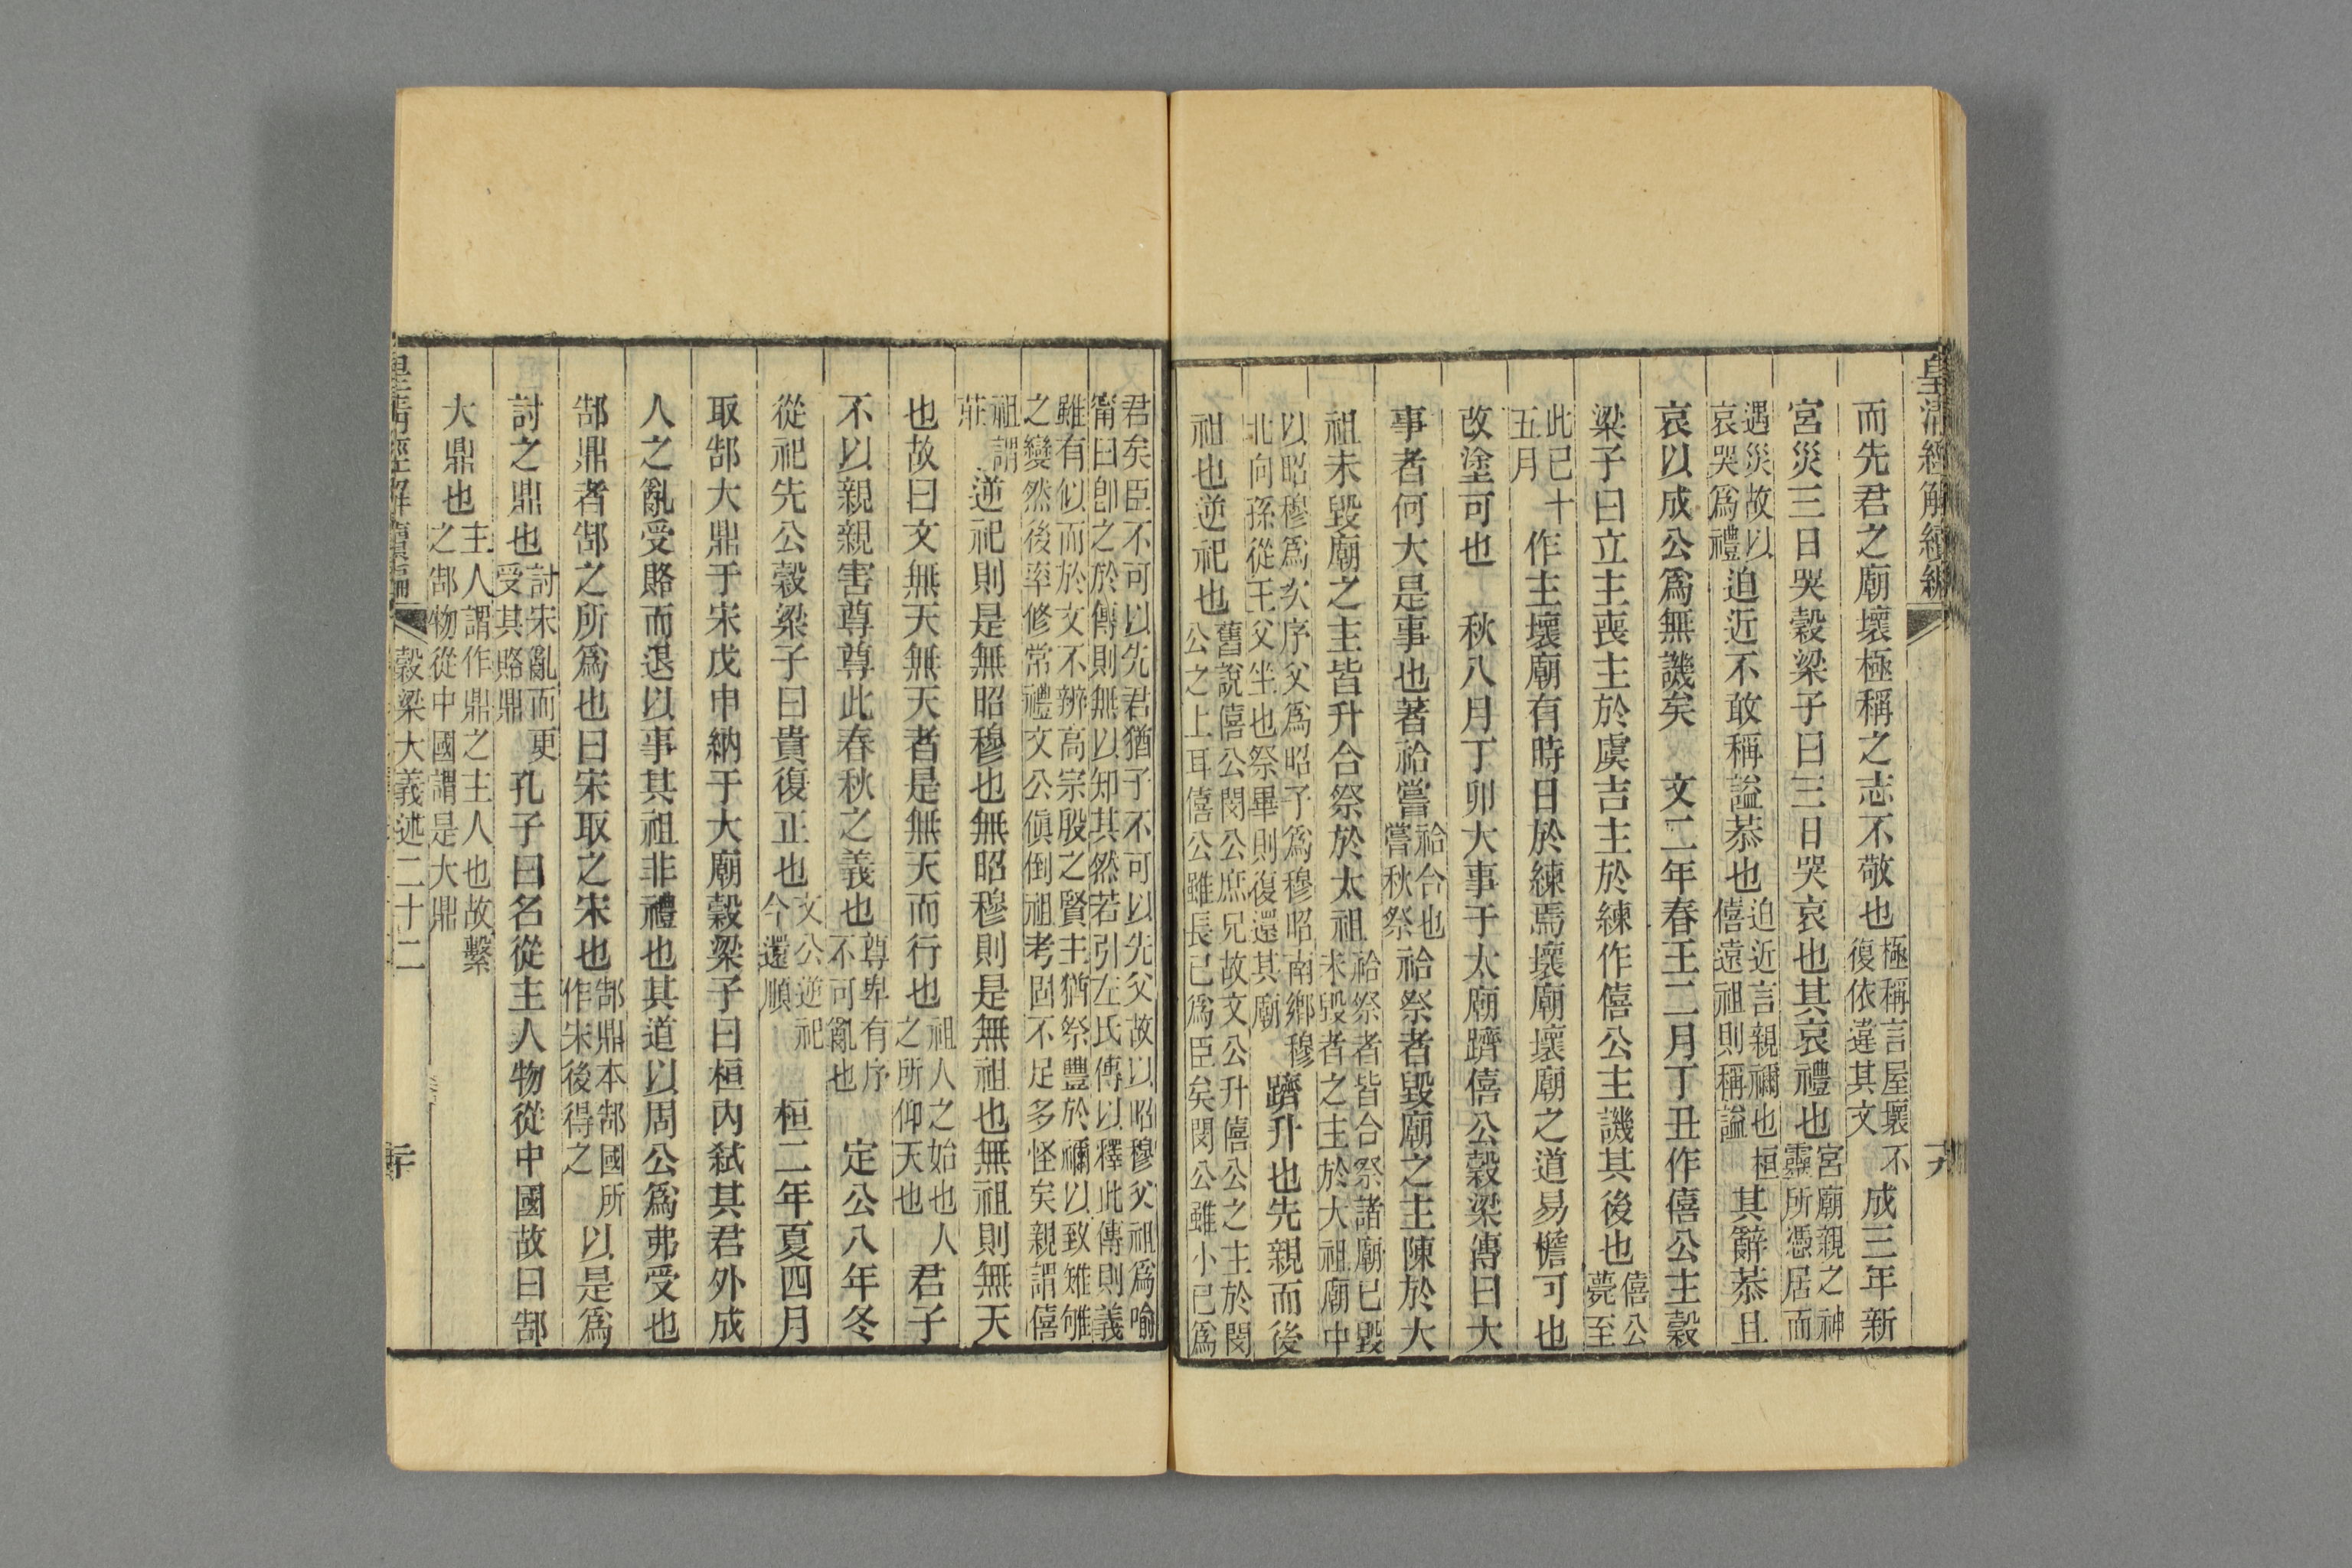 皇清經解續編 十九
而先君之廟壞極稱之志不敬也極稱言屋壞不復依違其文成三年新
宮災三日哭穀梁子曰三日哭哀也其哀禮也宮廟親之神靈所憑居而
遇災故以哀哭爲禮迫近不敢稱謚恭也迫近言親禰也桓僖遠祖則稱謚其辭恭且
哀以成公爲無譏矣　文二年春王二月丁丑作僖公主穀
梁子曰立主喪主於虞吉主於練作僖公主譏其後也僖公薨至
此已十五月作主壞廟有時日於練焉壞廟壞廟之道易檐可也
改塗可也　秋八月丁卯大事于太廟躋僖公穀梁傳曰大
事者何大是事也著祫嘗祫合也嘗秋祭祫祭者毀廟之主陳於大
祖未毀廟之主皆升合祭於太祖祫祭者皆合祭諸廟已毀未毀者之主於大祖廟中
以昭穆爲次序父爲昭子爲穆昭南鄉穆北向孫從王父坐也祭畢則復還其廟躋升也先親而後
祖也逆祀也舊說僖公閔公庶兄故文公升僖公之主於閔公之上耳僖公雖長已爲臣矣閔公雖小已爲
君矣臣不可以先君猶子不可以先父故以昭穆父祖爲喻
甯曰卽之於傳則無以知其然若引左氏傳以釋此傳則義
雖有似而於文不辨高宗殷之賢主猶祭豐於禰以致雉雊
之變然後率修常禮文公傎倒祖考固不足多怪矣親謂僖
祖謂莊逆祀則是無昭穆也無昭穆則是無祖也無祖則無天
也故曰文無天無天者是無天而行也祖人之始也人之所仰天也君子
不以親親害尊尊此春秋之義也尊卑有序不可亂也　定公八年冬
從祀先公穀梁子曰貴復正也文公逆祀今還順　桓二年夏四月
取郜大鼎于宋戊申納于大廟穀梁子曰桓內弑其君外成
人之亂受賂而退以事其祖非禮也其道以周公爲弗受也
郜鼎者郜之所爲也曰宋取之宋也郜鼎本郜國所作宋後得之以是爲
討之鼎也討宋亂而更受其賂鼎孔子曰名從主人物從中國故曰郜
大鼎也主人謂作鼎之主人也故繫之郜物從中國謂是大鼎
皇清經解續編 穀梁大義述二十二 二十